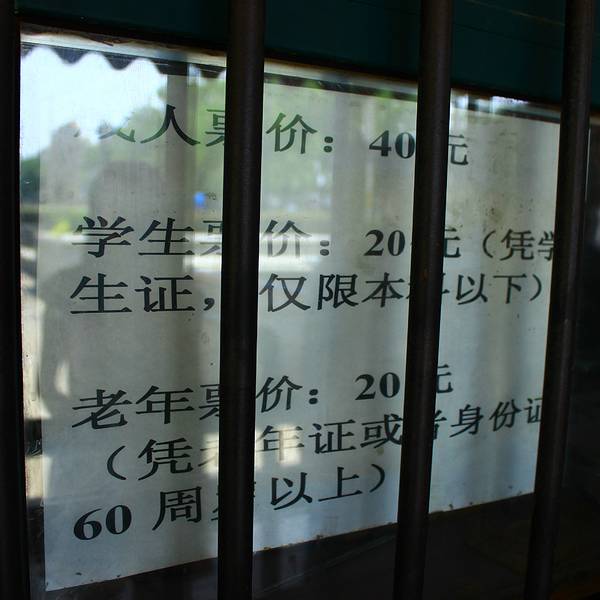 成人票价：40元
学生票价：20元（凭学
生证，仅限本科以下）
老年票价：20元
（凭老年证或者身份证
60周岁以上）